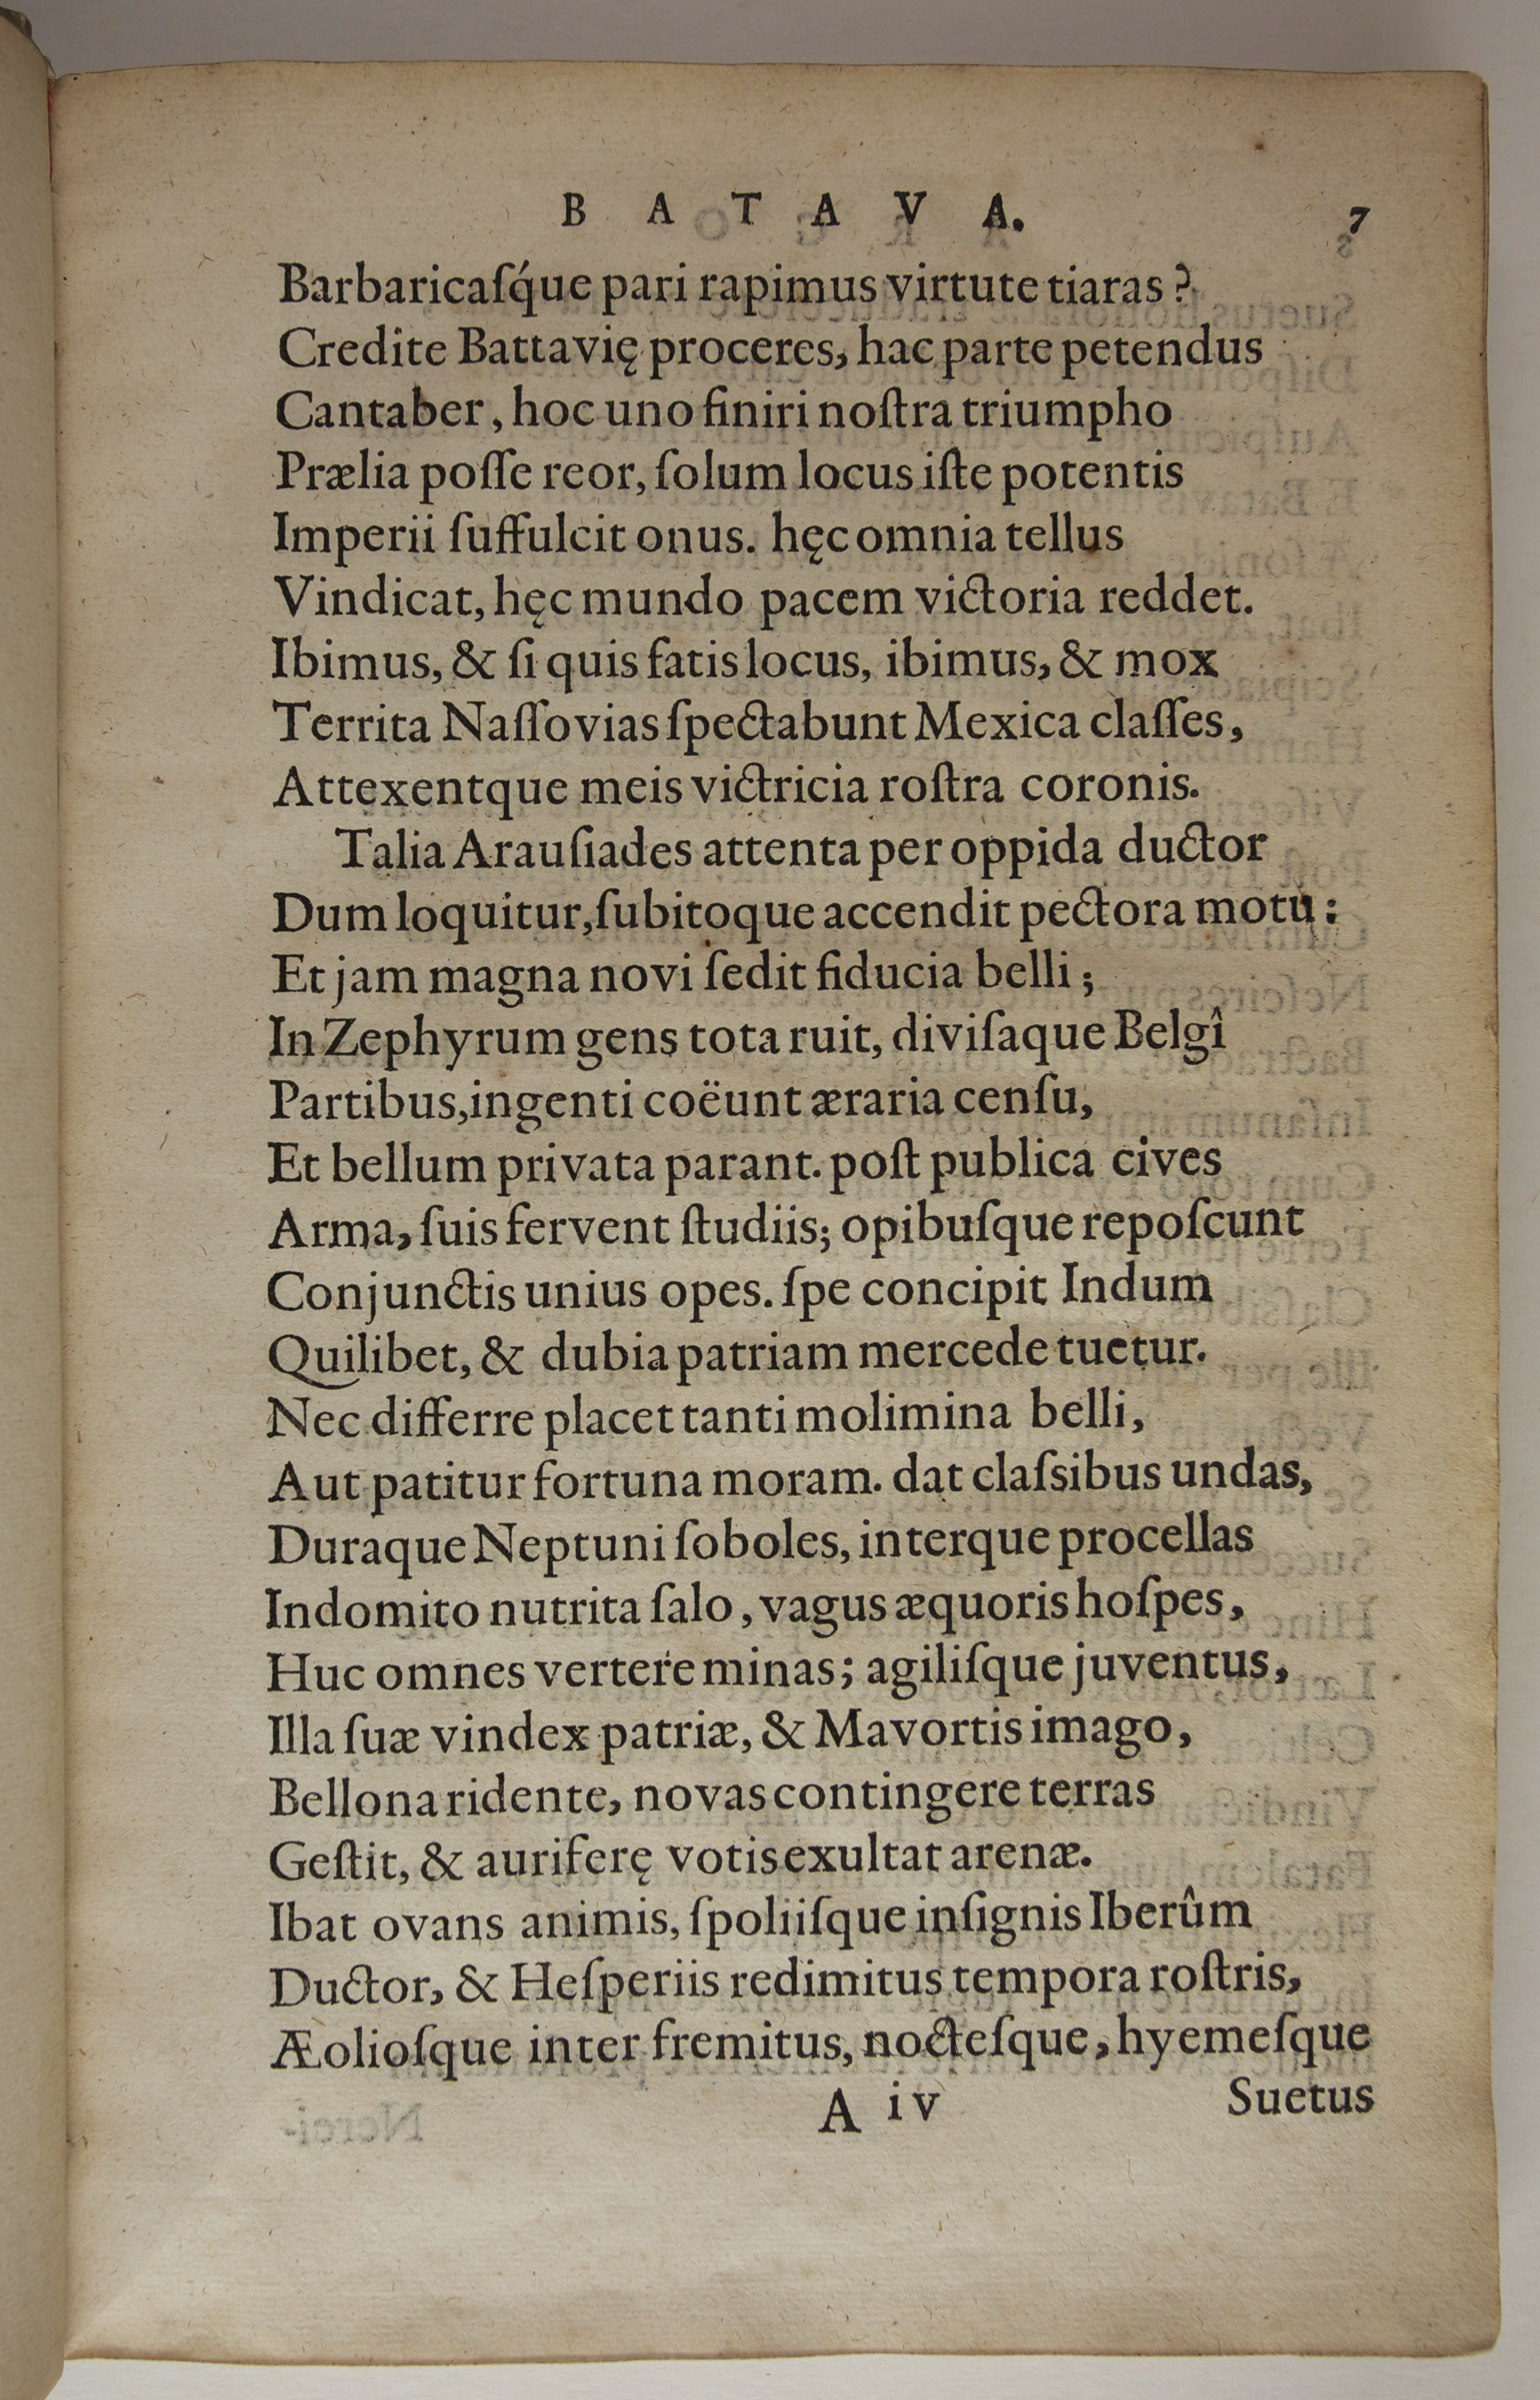 BATAVA. 7
Barbaricaſq́ue pari rapimus virtute tiaras?
Credite Battavię proceres, hac parte petendus
Cantaber, hoc uno finiri noſtra triumpho
Prælia poſſe reor, ſolum locus iſte potentis
Imperii ſuffulcit onus. hęc omnia tellus
Vindicat, hęc mundo pacem victoria reddet.
Ibimus, & ſi quis fatis locus, ibimus, & mox
Territa Naſſovias ſpectabunt Mexica claſſes,
Attexentque meis victricia roſtra coronis.
Talia Arauſiades attenta per oppida ductor
Dum loquitur, ſubitoque accendit pectora motu:
Et jam magna novi ſedit fiducia belli;
In Zephyrum gens tota ruit, diviſaque Belgî
Partibus, ingenti coëunt æraria cenſu,
Et bellum privata parant. poſt publica cives
Arma, ſuis fervent ſtudiis; opibuſque repoſcunt
Conjunctis unius opes. ſpe concipit Indum
Quilibet, & dubia patriam mercede tuetur.
Nec differre placet tanti molimina belli,
Aut patitur fortuna moram. dat claſsibus undas,
Duraque Neptuni ſoboles, interque procellas
Indomito nutrita ſalo, vagus æquoris hoſpes,
Huc omnes vertere minas; agiliſque juventus,
Illa ſuæ vindex patriæ, & Mavortis imago,
Bellona ridente, novas contingere terras
Geſtit, & auriferę votis exultat arenæ.
Ibat ovans animis, ſpoliiſque inſignis Iberûm
Ductor, & Heſperiis redimitus tempora roſtris,
Æolioſque inter fremitus, nocteſque, hyemeſque
A iv Suetus